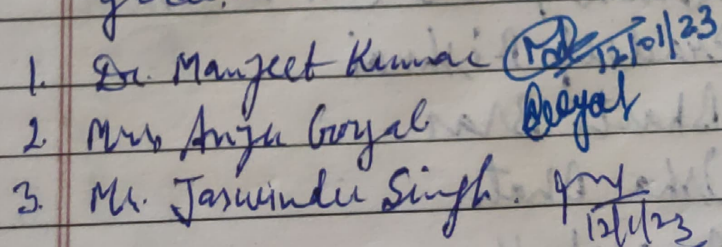 1. Dr. Manjeet Kumar 12/01/23
2. Mrs Anju Goyal Goyal
3. Mr. Jaswinder Singh. 12/1/23